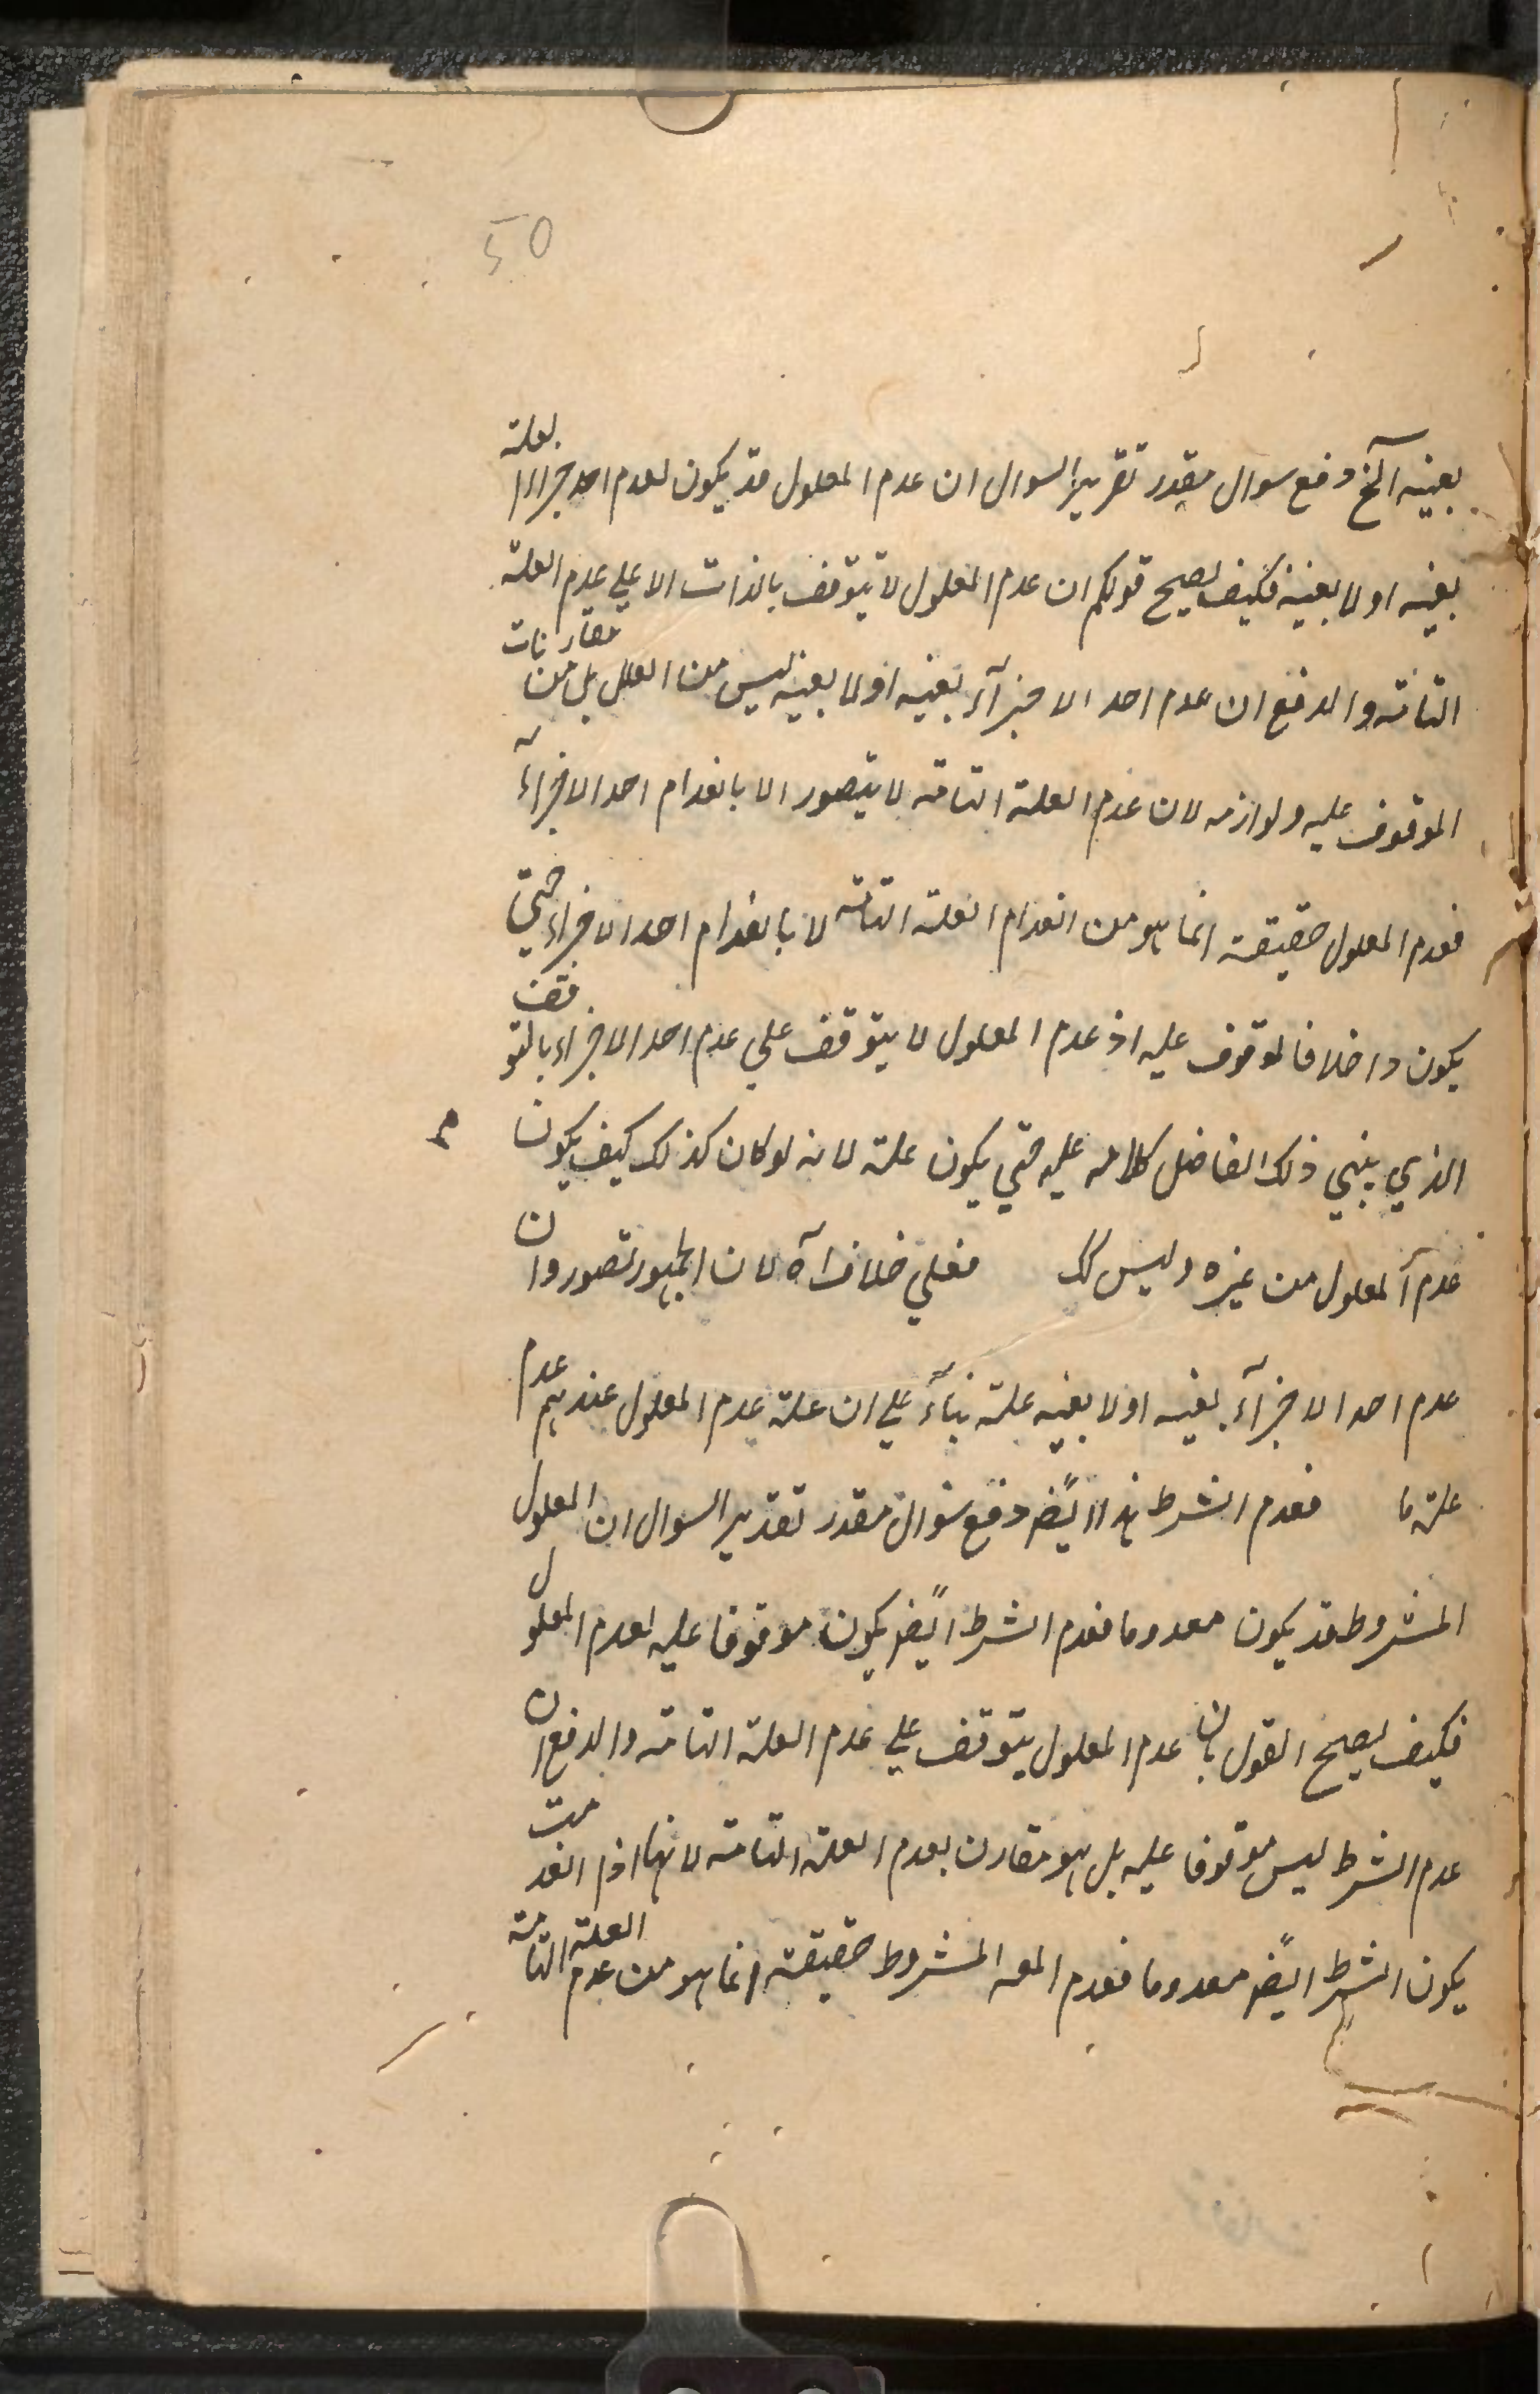 50
بعينه آلخ دفع سوال مقدر تقرير السوال ان عدم المعلول قد يكون لعدم احد اجزاء العلة
بعينه او لا بعينه فكيف يصح قولكم ان عدم المعلول لا يتوقف بالذات الا علي عدم العلة
التامة والدفع ان عدم احد الاجزآء بعينه او لا بعينه ليس من العلل بل من مقارنات
الموقوف عليه ولوازمه لان عدم العلة التامة لا يتصور الا بانعدام احد الاجزآء
فعدم المعلول حقيقة انما هو من انعدام العلة التامة لا بانعدام احد الاجزاء حتي
يكون داخلا فالموقوف عليه اذ عدم المعلول لا يتوقف علي عدم احد الاجزاء بالتوقف
الذي يبني ذلك الفاضل كلامه عليه حتي يكون علة لانه لو كان كذلك كيف يكون
عدم المعلول من غيره وليس كك فعلي خلاف آه لان الجمهور تصوروا ان
عدم احد الاجزآء بعينه او لا بعينه علة بنآء علي ان علة عدم المعلول عندهم عدم
علة ما فعدم الشرط هذا ايضً دفع سوال مقدر تقدير السوال ان المعلول
المشروط قد يكون معدوما فعدم الشرط ايضً يكون موقوفا عليه لعدم المعلول
فكيف يصح القول بان عدم المعلول يتوقف علي عدم العلة التامة والدفع ان
عدم الشرط ليس موقوفا عليه بل هو مقارن لعدم العلة التامة لانها اذا انعدمت
يكون الشرط ايضً معدوما فعدم المعه المشروط حقيقة انما هو من عدم العلة التامة